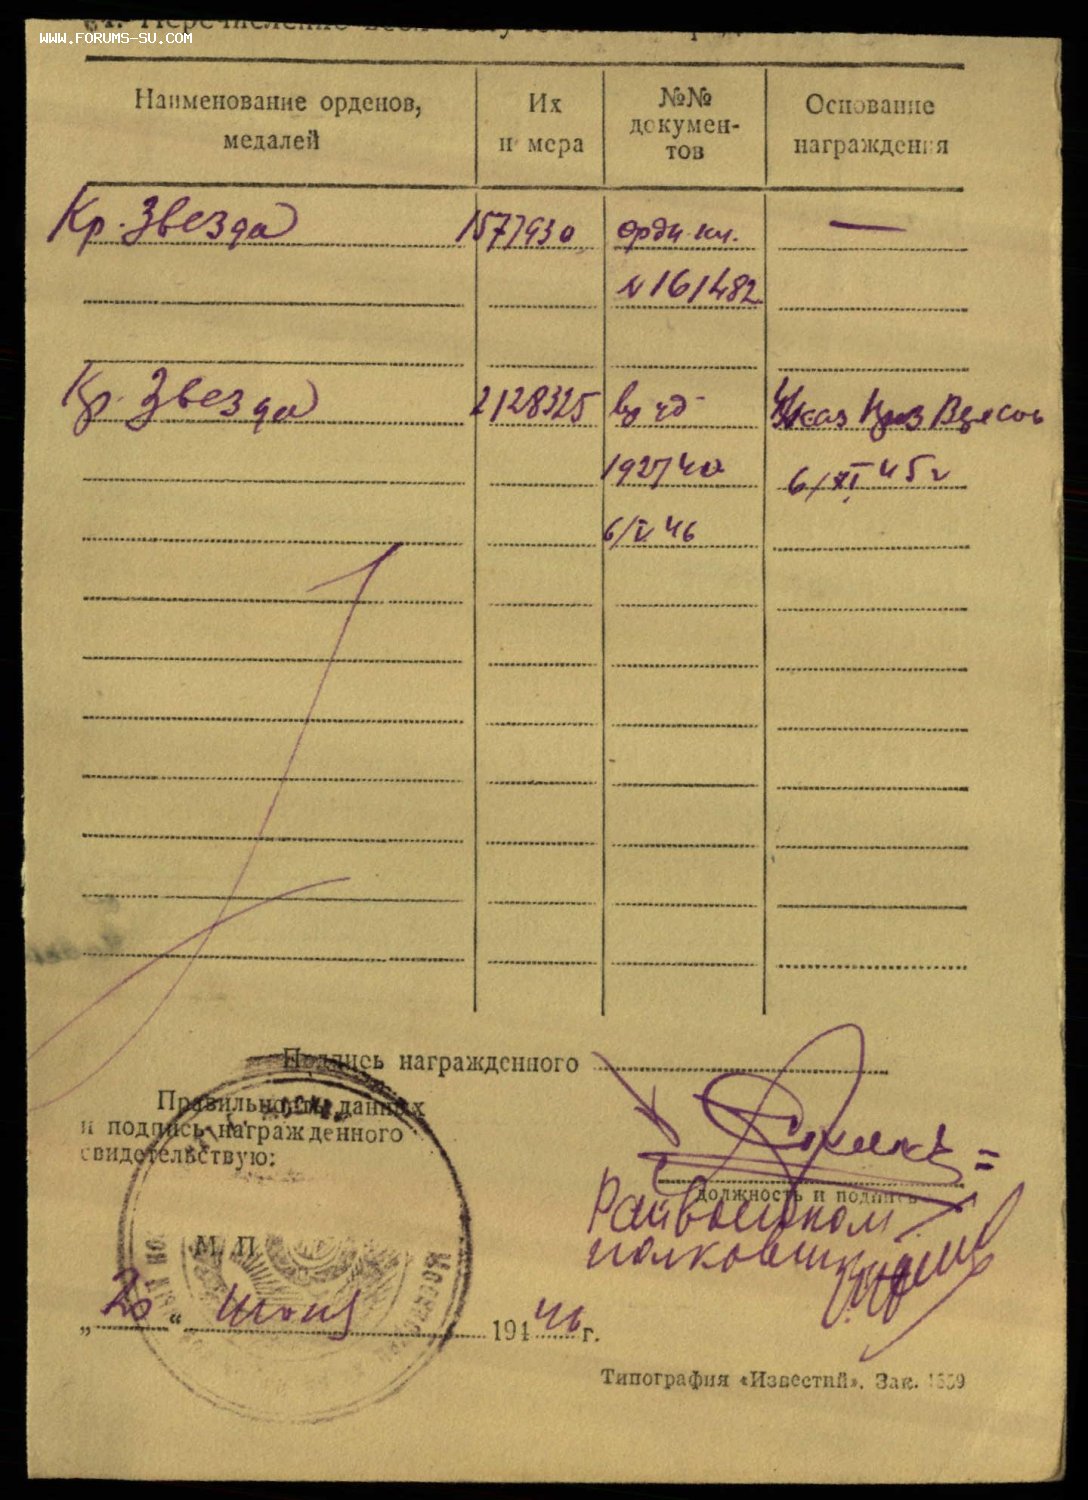 WWW.FORUMS-SU.COM
Наименование орденов, медалей
Их номера
№№ документов
Основание награждения
Кр. Звезда 1577930 орд. кн. —
№161482
Кр. Звезда 2128325 вр уд Указ През
192740 6/XI 45 г
6/V 46
Подпись награжденного
Правильность данных
и подпись награжденного
свидетельствую:
должность и подпись
Райвоенком
полковник
М. П.
„20“ июня 1946 г.
Типография «Известий». Зак. 1559